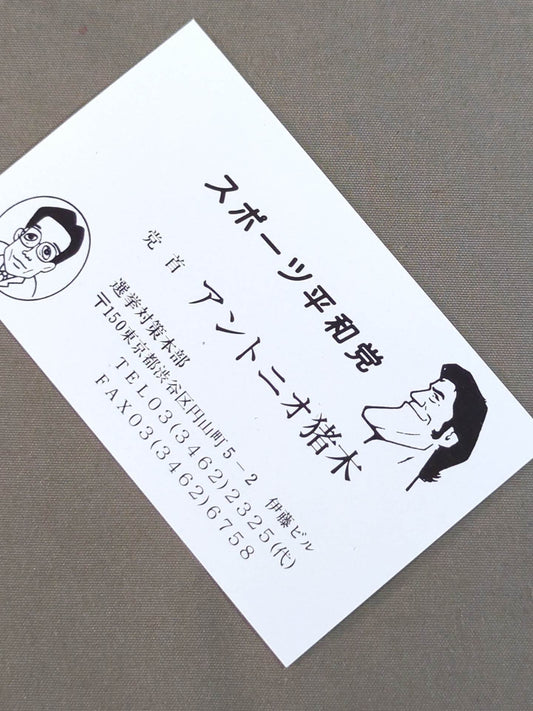 スポーツ平和党
党首 アントニオ猪木
選挙対策本部
〒150東京都渋谷区円山町5－2 伊藤ビル
TEL03(3462)2325(代)
FAX03(3462)6758